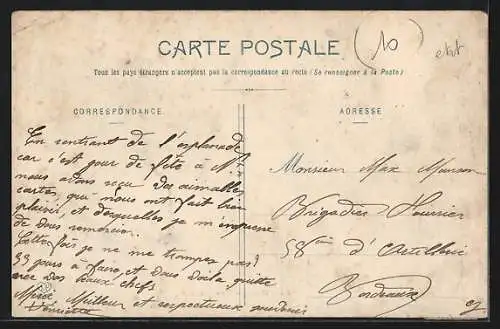 CARTE POSTALE
(10)
Tous les pays étrangers n'acceptent pas la correspondance au recto (Se renseigner à la Poste)
CORRESPONDANCE
En rentrant de l'esplanade
car c'est jour de fête à N.
nous avons reçu des aimables
cartes, qui nous ont fait bien
plaisir, et desquelles je m'empresse
de vous remercier.
Cette fois je ne me trompe pas
33 jours à faire, et vous voilà quitte
avec vos beaux chefs
Mille Meilleurs et respectueux souvenirs
Henriette
ADRESSE
Monsieur Max
Brigadier Fourrier
58ème d'Artillerie
Bordeaux